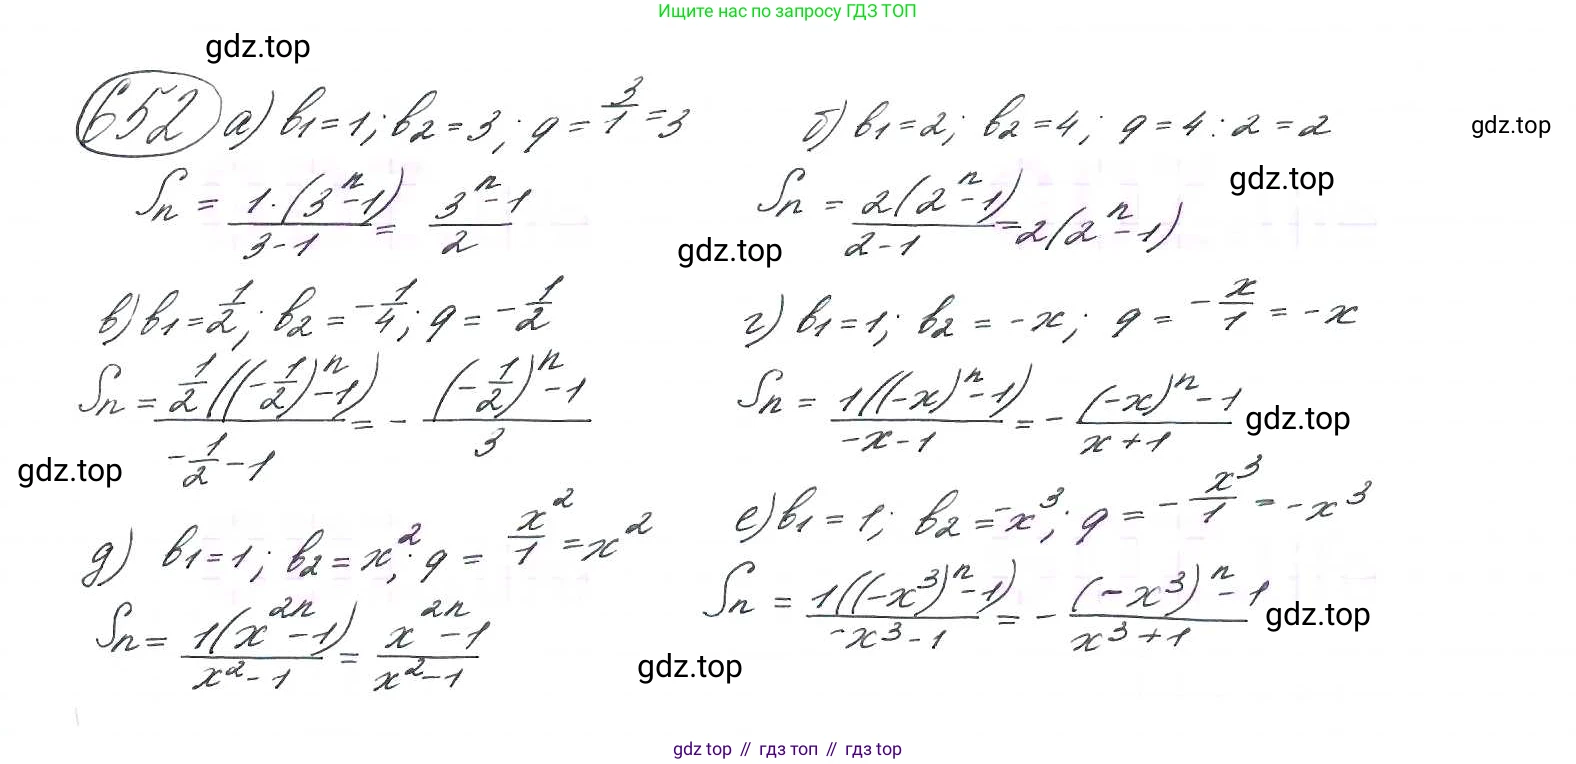 Ищите нас по запросу ГДЗ ТОП
gdz.top
652 а) b₁ = 1; b₂ = 3; q = 3/1 = 3
Sₙ = 1·(3ⁿ-1)/(3-1) = (3ⁿ-1)/2
б) b₁ = 2; b₂ = 4; q = 4 : 2 = 2
gdz.top
gdz.top
Sₙ = 2(2ⁿ-1)/(2-1) = 2(2ⁿ-1)
gdz.top
в) b₁ = 1/2; b₂ = -1/4; q = -1/2
Sₙ = 1/2((-1/2)ⁿ-1)/(-1/2-1) = - ((-1/2)ⁿ-1)/3
г) b₁ = 1; b₂ = -x; q = -x/1 = -x
Sₙ = 1((-x)ⁿ-1)/(-x-1) = - ((-x)ⁿ-1)/(x+1)
gdz.top
gdz.top
д) b₁ = 1; b₂ = x²; q = x²/1 = x²
Sₙ = 1(x²ⁿ-1)/(x²-1) = (x²ⁿ-1)/(x²-1)
е) b₁ = 1; b₂ = -x³; q = -x³/1 = -x³
Sₙ = 1((-x³)ⁿ-1)/(-x³-1) = - ((-x³)ⁿ-1)/(x³+1)
gdz.top
gdz.top
gdz top // гдз топ // гдз top